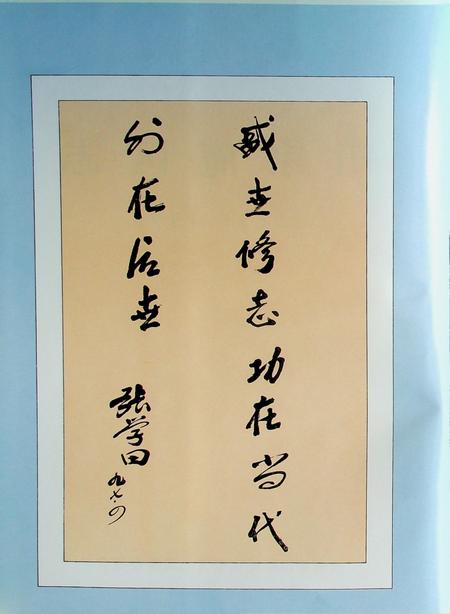 盛世修志功在当代
利在后世
张学田
九七.四